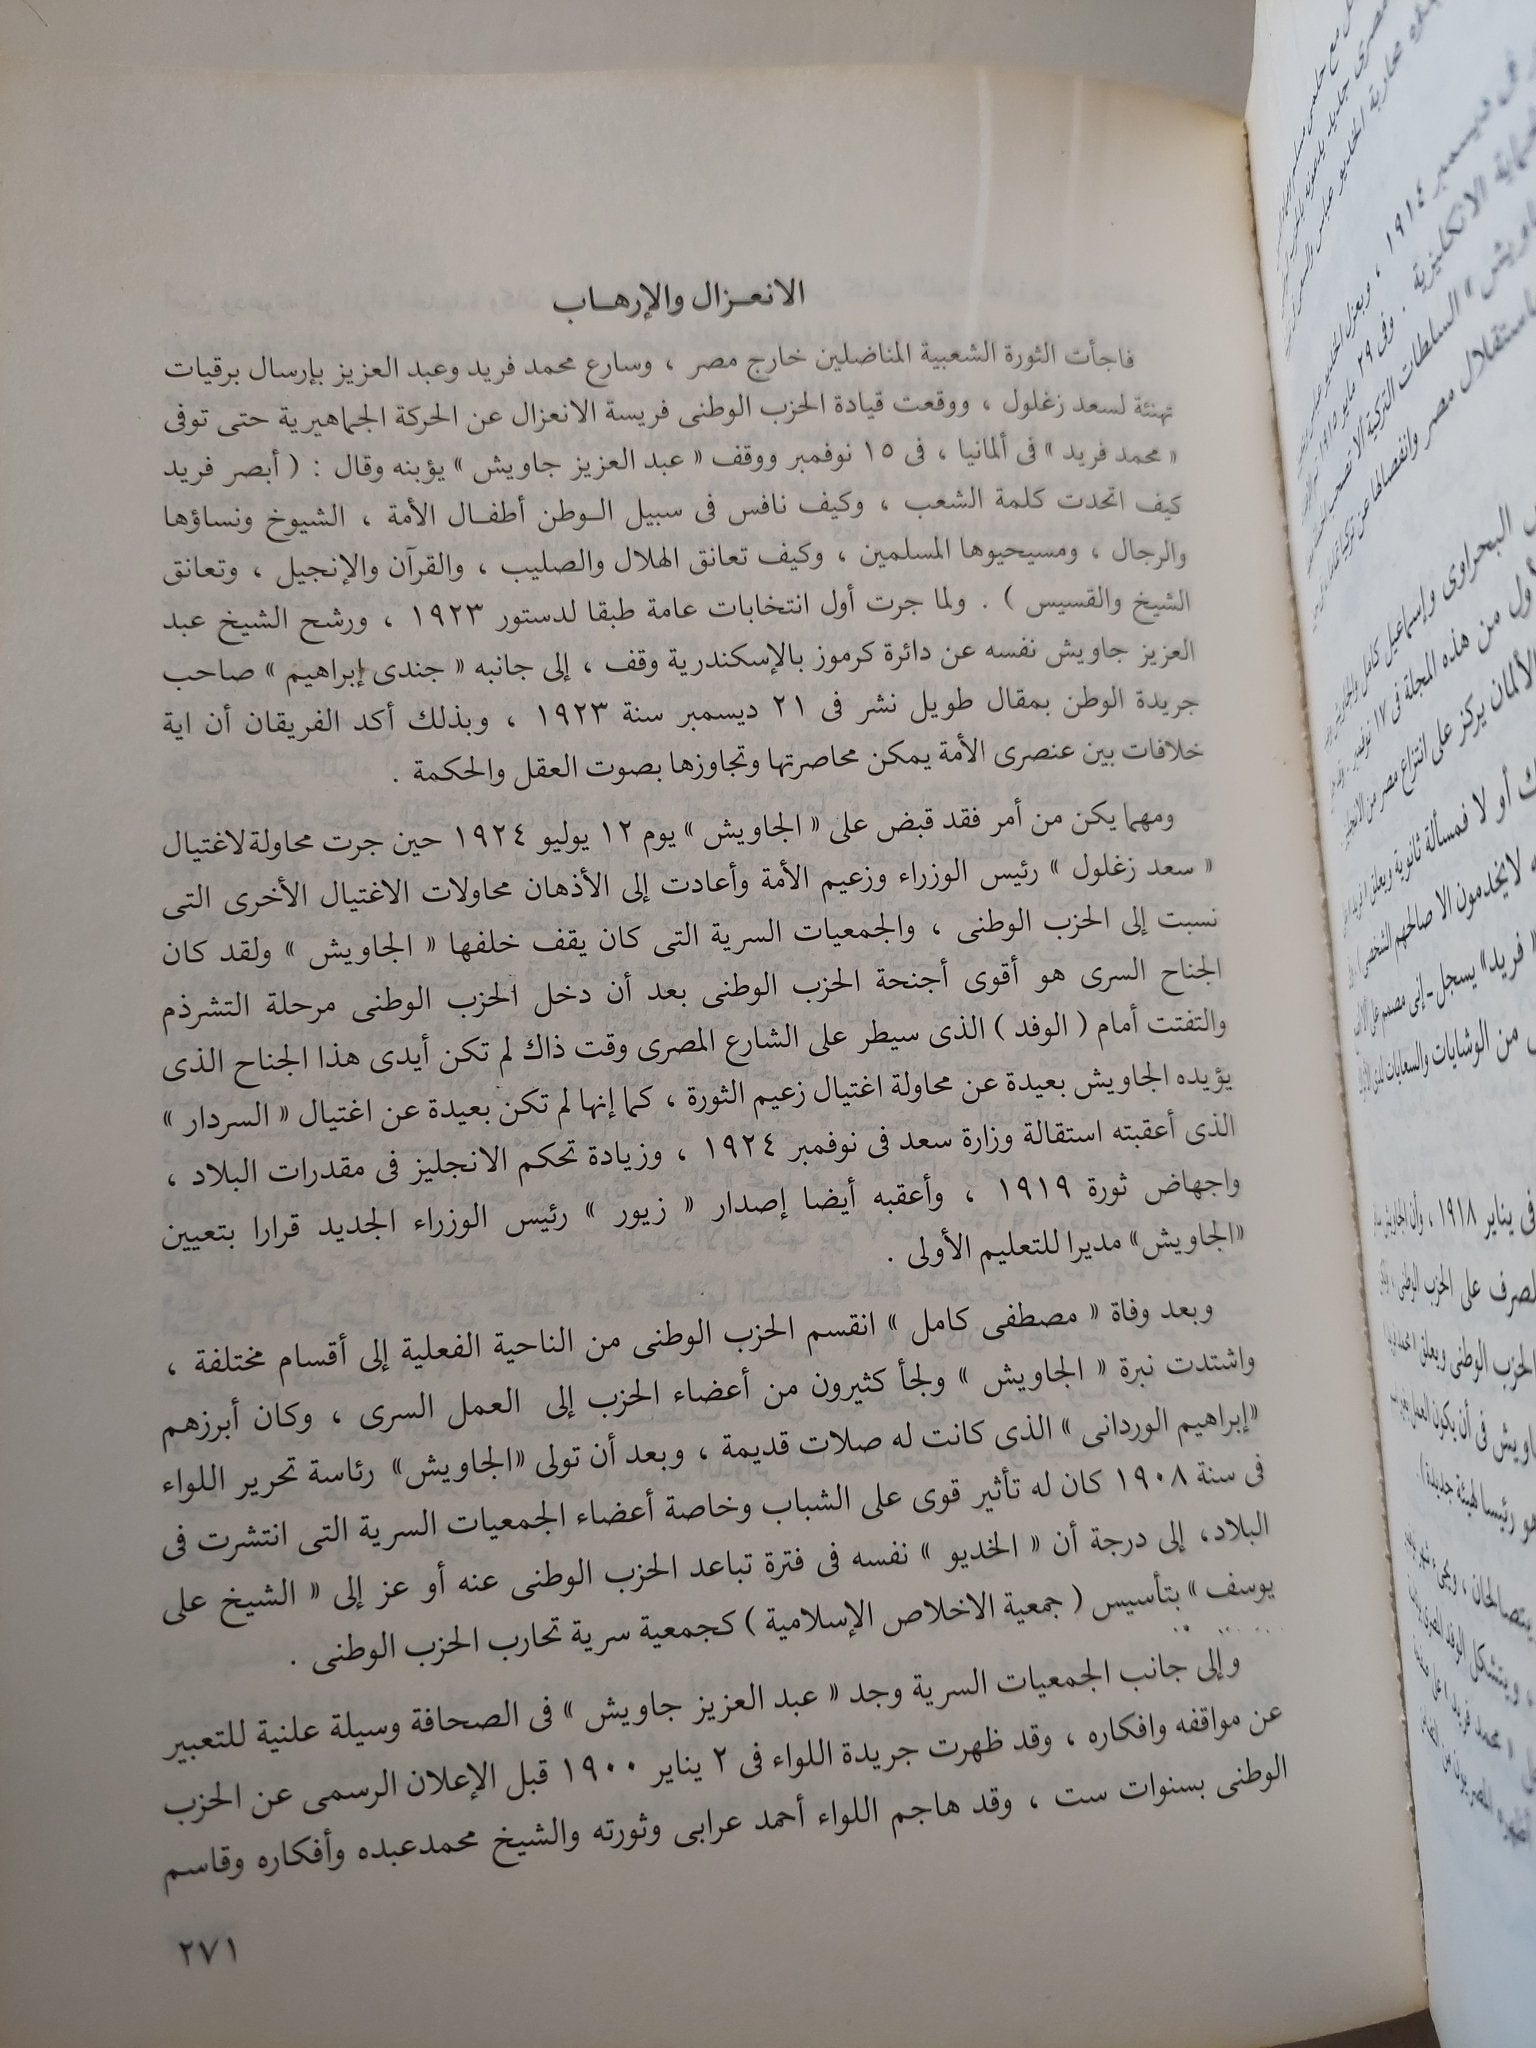 الانعزال والإرهاب
فاجأت الثورة الشعبية المناضلين خارج مصر ، وسارع محمد فريد وعبد العزيز بإرسال برقيات
تهنئة لسعد زغلول ، ووقعت قيادة الحزب الوطنى فريسة الانعزال عن الحركة الجماهيرية حتى توفى
« محمد فريد » فى ألمانيا ، فى ١٥ نوفمبر ووقف « عبد العزيز جاويش » يؤبنه وقال : ( أبصر فريد
كيف اتحدت كلمة الشعب ، وكيف نافس فى سبيل الوطن أطفال الأمة ، الشيوخ ونساؤها
والرجال ، ومسيحيوها المسلمين ، وكيف تعانق الهلال والصليب ، والقرآن والإنجيل ، وتعانق
الشيخ والقسيس ) . ولما جرت أول انتخابات عامة طبقا لدستور ١٩٢٣ ، ورشح الشيخ عبد
العزيز جاويش نفسه عن دائرة كرموز بالإسكندرية وقف ، إلى جانبه « جندى إبراهيم » صاحب
جريدة الوطن بمقال طويل نشر فى ٢١ ديسمبر سنة ١٩٢٣ ، وبذلك أكد الفريقان أن اية
خلافات بين عنصرى الأمة يمكن محاصرتها وتجاوزها بصوت العقل والحكمة .
ومهما يكن من أمر فقد قبض على « الجاويش » يوم ١٢ يوليو ١٩٢٤ حين جرت محاولة لاغتيال
« سعد زغلول » رئيس الوزراء وزعيم الأمة وأعادت إلى الأذهان محاولات الاغتيال الأخرى التى
نسبت إلى الحزب الوطنى ، والجمعيات السرية التى كان يقف خلفها « الجاويش » ولقد كان
الجناح السرى هو أقوى أجنحة الحزب الوطنى بعد أن دخل الحزب الوطنى مرحلة التشرذم
والتفتت أمام ( الوفد ) الذى سيطر على الشارع المصرى وقت ذاك لم تكن أيدى هذا الجناح الذى
يؤيده الجاويش بعيدة عن محاولة اغتيال زعيم الثورة ، كما إنها لم تكن بعيدة عن اغتيال « السردار »
الذى أعقبته استقالة وزارة سعد فى نوفمبر ١٩٢٤ ، وزيادة تحكم الانجليز فى مقدرات البلاد ،
واجهاض ثورة ١٩١٩ ، وأعقبه أيضا إصدار « زيور » رئيس الوزراء الجديد قرارا بتعيين
«الجاويش» مديرا للتعليم الأولى .
وبعد وفاة « مصطفى كامل » انقسم الحزب الوطنى من الناحية الفعلية إلى أقسام مختلفة ،
واشتدت نبرة « الجاويش » ولجأ كثيرون من أعضاء الحزب إلى العمل السرى ، وكان أبرزهم
«إبراهيم الوردانى » الذى كانت له صلات قديمة ، وبعد أن تولى «الجاويش» رئاسة تحرير اللواء
فى سنة ١٩٠٨ كان له تأثير قوى على الشباب وخاصة أعضاء الجمعيات السرية التى انتشرت فى
البلاد، إلى درجة أن « الخديو » نفسه فى فترة تباعد الحزب الوطنى عنه أو عز إلى « الشيخ على
يوسف » بتأسيس ( جمعية الاخلاص الإسلامية ) كجمعية سرية تحارب الحزب الوطنى .
وإلى جانب الجمعيات السرية وجد « عبد العزيز جاويش » فى الصحافة وسيلة علنية للتعبير
عن مواقفه وافكاره ، وقد ظهرت جريدة اللواء فى ٢ يناير ١٩٠٠ قبل الإعلان الرسمى عن الحزب
الوطنى بسنوات ست ، وقد هاجم اللواء أحمد عرابى وثورته والشيخ محمدعبده وأفكاره وقاسم
٢٧١